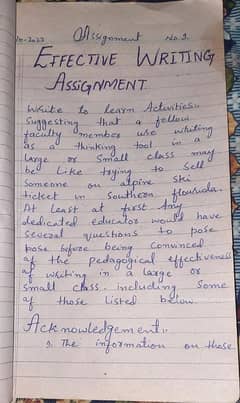 Assignment No 1.
EFFECTIVE WRITING
ASSIGNMENT
Write to learn Activities:.
Suggesting that a fellow
faculty member use writing
as a thinking tool in a
large or small class may
be like trying to sell
someone an alpine ski
ticket in Southern
At least at first Any
dedicated educator would have
several questions to pose
pose before being convinced
of the pedagogical effectiveness
of writing in a large or
small class. including Some
of those listed below.
Acknowledgement:.
The information on these